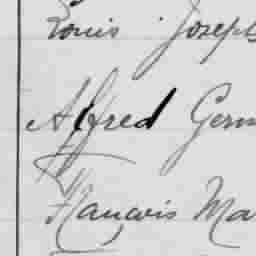 Louis Joseph
Alfred Germ
Francois Ma